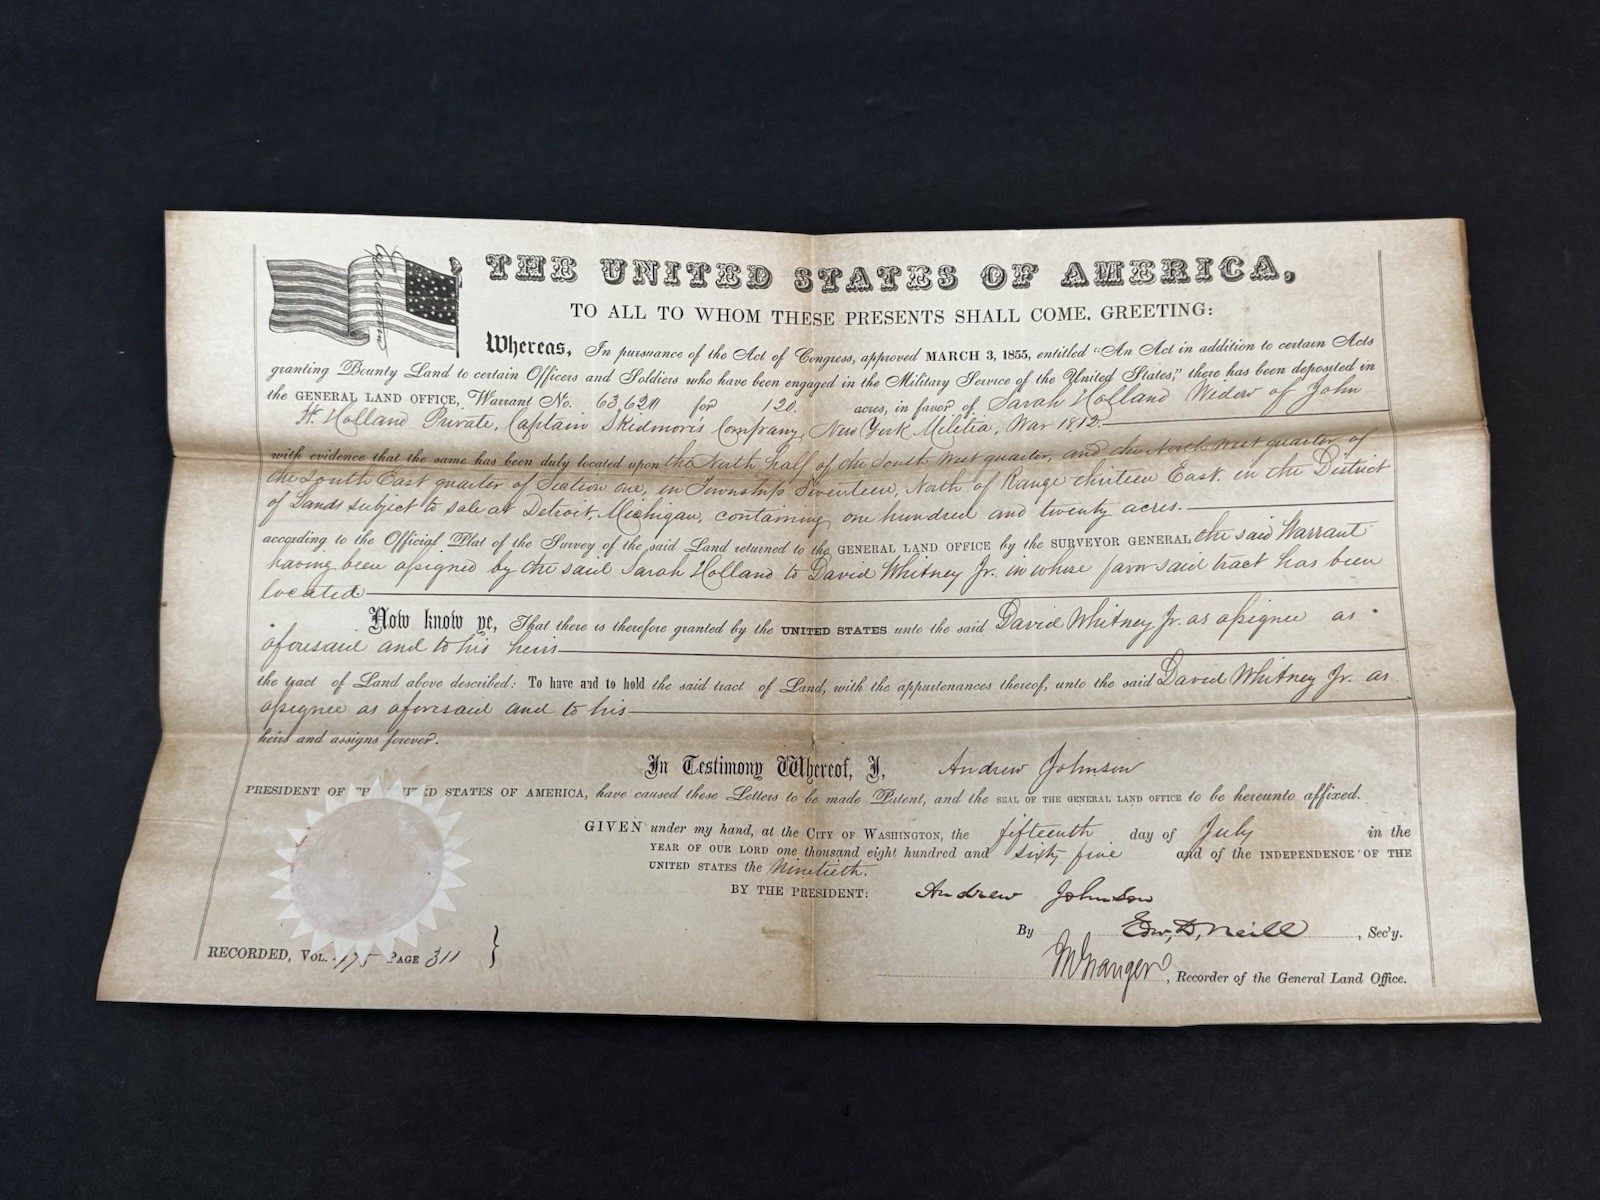 THE UNITED STATES OF AMERICA,
TO ALL TO WHOM THESE PRESENTS SHALL COME, GREETING:
Whereas, In pursuance of the Act of Congress, approved MARCH 3, 1855, entitled "An Act in addition to certain Acts
granting Bounty Land to certain Officers and Soldiers who have been engaged in the Military Service of the United States," there has been deposited in
the GENERAL LAND OFFICE, Warrant No. for 120 acres, in favor of Sarah Holland Widow of John
H. Holland Private, Captain Skidmore's Company, New York Militia, War 1812.
with evidence that the same has been duly located upon the North half of the South West quarter, and the North West quarter of
the South East quarter of Section one, in Township Seventeen, North of Range thirteen East, in the District
of Lands subject to sale at Detroit, Michigan, containing one hundred and twenty acres.
according to the Official Plat of the Survey of the said Land returned to the GENERAL LAND OFFICE by the SURVEYOR GENERAL the said Warrant
having been assigned by the said Sarah Holland to David Whitney Jr. in whose favor said tract has been
located
Now know ye, That there is therefore granted by the UNITED STATES unto the said David Whitney Jr. as assignee as
aforesaid and to his heirs
the tract of Land above described: To have and to hold the said tract of Land, with the appurtenances thereof, unto the said David Whitney Jr. as
assignee as aforesaid and to his
heirs and assigns forever.
In Testimony Whereof, I, Andrew Johnson
PRESIDENT OF THE UNITED STATES OF AMERICA, have caused these Letters to be made Patent, and the SEAL OF THE GENERAL LAND OFFICE to be hereunto affixed.
GIVEN under my hand, at the CITY OF WASHINGTON, the fifteenth day of July in the
YEAR OF OUR LORD one thousand eight hundred and sixty five and of the INDEPENDENCE OF THE
UNITED STATES the Ninetieth.
BY THE PRESIDENT: Andrew Johnson
By Edw, D, Neill, Sec'y.
RECORDED, VOL. 175 PAGE 311
Granger, Recorder of the General Land Office.